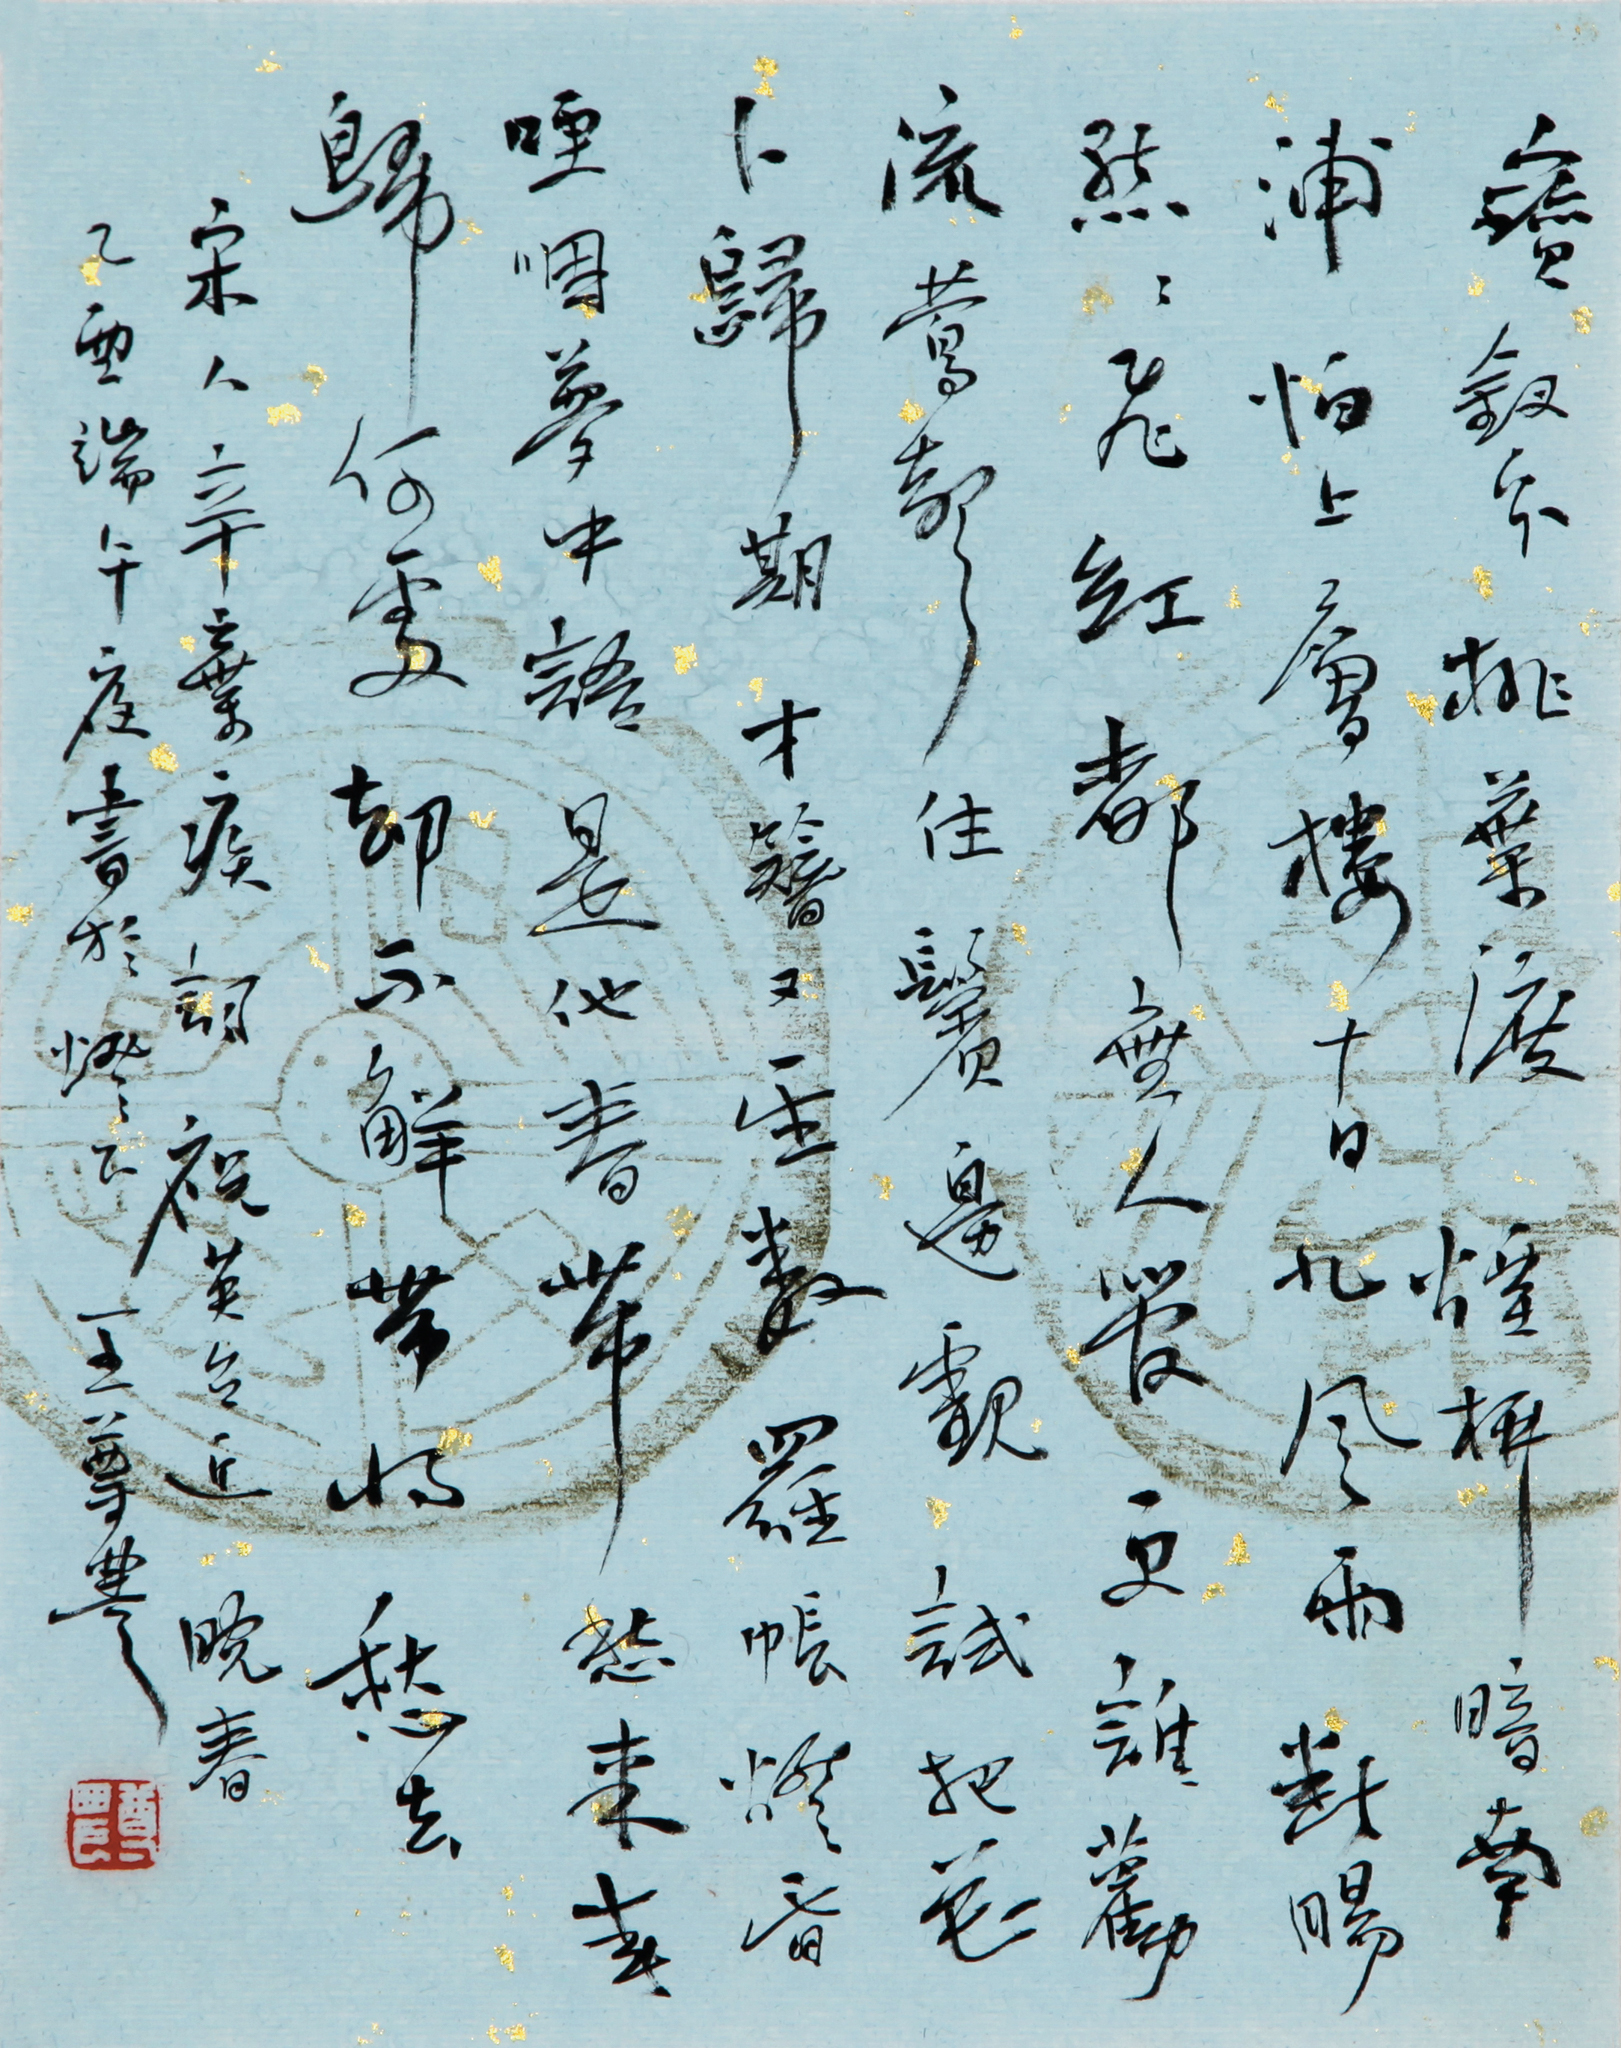 寶釵分桃葉渡煙柳暗南
浦怕上層樓十日九風雨斷腸
點點飛紅都無人管更誰勸
流鶯聲住鬢邊覷試把花
卜歸期才簪又重數羅帳燈昏
哽咽夢中語是他春帶愁來春
歸何處却不解帶將愁去
宋人辛棄疾詞祝英台近晚春
乙酉端午夜書於燈下王尊